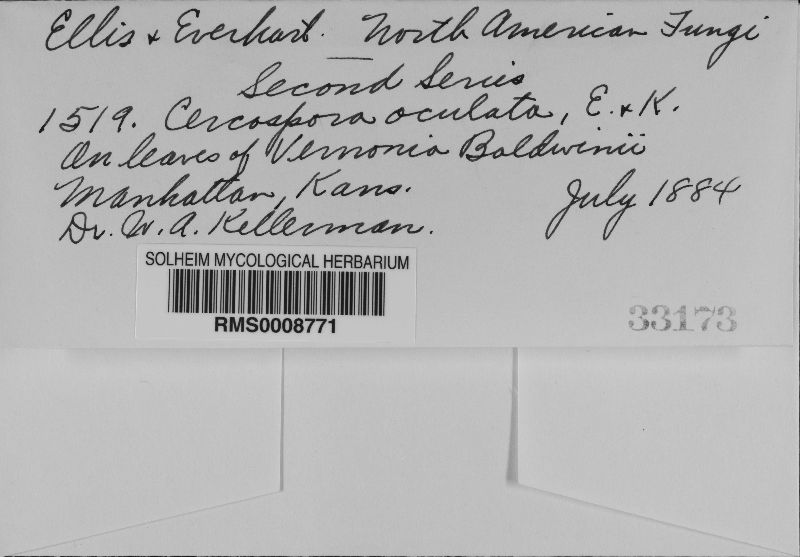 Ellis & Everhart. North American Fungi
Second Series
1519. Cercospora oculata, E. & K.
On leaves of Vernonia Baldwinii
Manhattan, Kans. July 1884
Dr. W. A. Kellerman.
SOLHEIM MYCOLOGICAL HERBARIUM
RMS0008771
33173